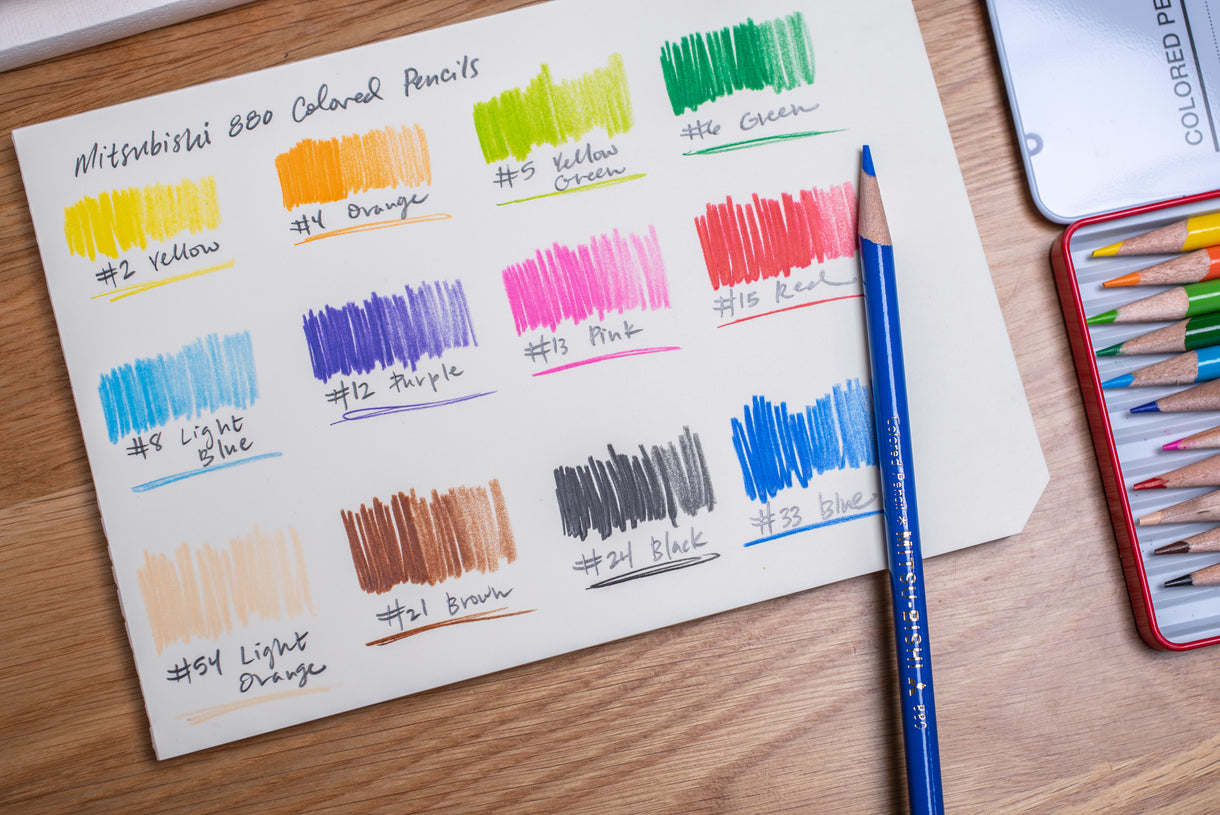 Mitsubishi 880 Colored Pencils
#2 Yellow
#4 Orange
#5 Yellow
Green
#6 Green
#8 Light
Blue
#12 Purple
#13 Pink
#15 Red
#54 Light
Orange
#21 Brown
#24 Black
#33 Blue
Colored Pencil ★ MITSU-BISHI 880
COLORED PE